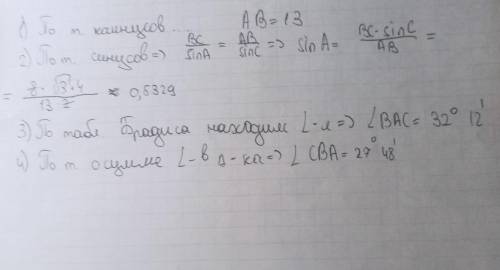 1) По т. каинусов ... AB = 13
2) По т. синусов => BC/sinA = AB/sinC => sinA = BC·sinC/AB =
= 8·√3·4/13 7 ≈ 0,5329
3) По табл Брадиса находим ∠-л => ∠BAC = 32° 12'
4) По т о сумме ∠-в Δ-ка => ∠CBA = 27° 48'